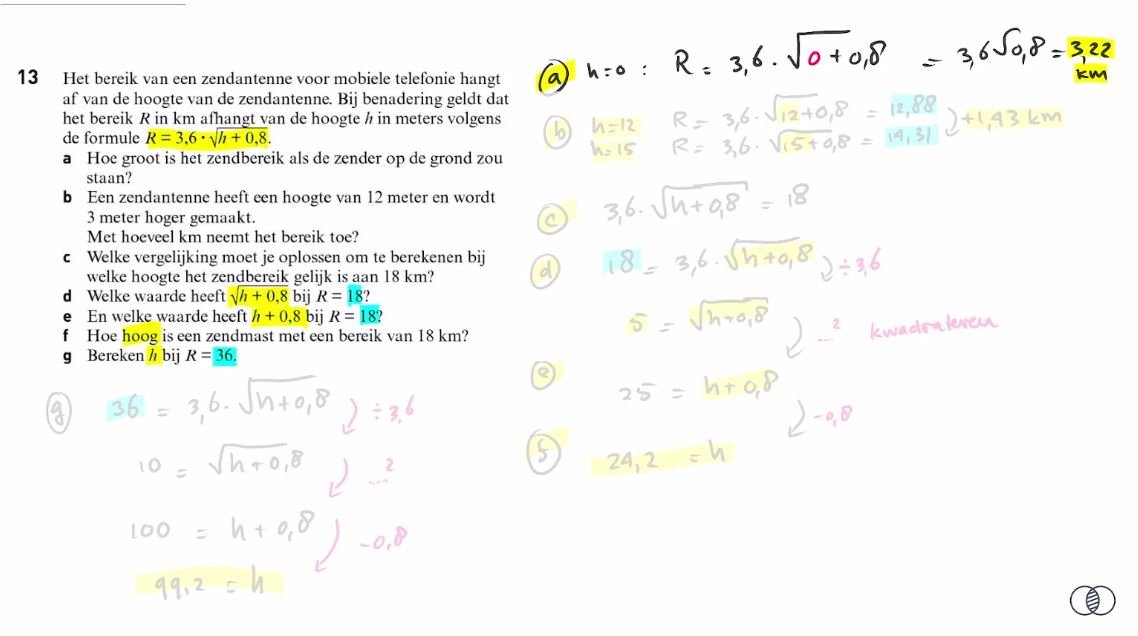 13 Het bereik van een zendantenne voor mobiele telefonie hangt
af van de hoogte van de zendantenne. Bij benadering geldt dat
het bereik R in km afhangt van de hoogte h in meters volgens
de formule R = 3,6 · √(h + 0,8).
a Hoe groot is het zendbereik als de zender op de grond zou
staan?
b Een zendantenne heeft een hoogte van 12 meter en wordt
3 meter hoger gemaakt.
Met hoeveel km neemt het bereik toe?
c Welke vergelijking moet je oplossen om te berekenen bij
welke hoogte het zendbereik gelijk is aan 18 km?
d Welke waarde heeft √(h + 0,8) bij R = 18?
e En welke waarde heeft h + 0,8 bij R = 18?
f Hoe hoog is een zendmast met een bereik van 18 km?
g Bereken h bij R = 36.
(a) h=0 : R = 3,6 · √(0+0,8) = 3,6√0,8 = 3,22
km
(b) h=12 R = 3,6 · √(12+0,8) = 12,88
h=15 R = 3,6 · √(15+0,8) = 14,31 +1,43 km
(c) 3,6 · √(h+0,8) = 18
(d) 18 = 3,6 · √(h+0,8) ÷3,6
5 = √(h+0,8) ...² kwadrateren
(e) 25 = h+0,8 -0,8
(f) 24,2 = h
(g) 36 = 3,6 · √(h+0,8) ÷3,6
10 = √(h+0,8) ...²
100 = h+0,8 -0,8
99,2 = h